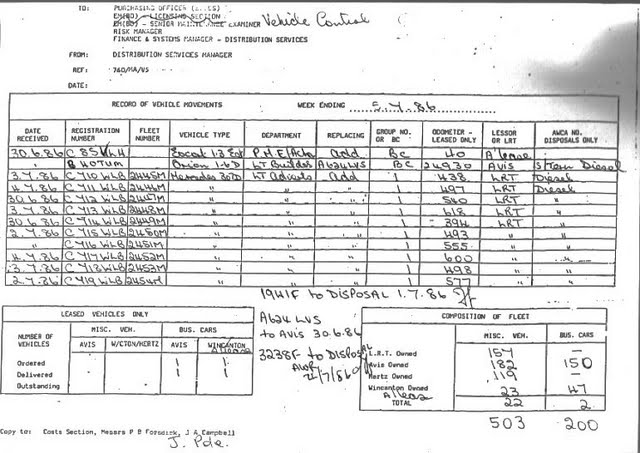 TO: PURCHASING OFFICER
LICENSING SECTION
SENIOR EXAMINER Vehicle Control
RISK MANAGER
FINANCE & SYSTEMS MANAGER - DISTRIBUTION SERVICES
FROM: DISTRIBUTION SERVICES MANAGER
REF: 760/MA/VS
DATE:
RECORD OF VEHICLE MOVEMENTS WEEK ENDING 5.7.86
DATE RECEIVED REGISTRATION NUMBER FLEET NUMBER VEHICLE TYPE DEPARTMENT REPLACING GROUP NO. OR BC ODOMETER - LEASED ONLY LESSOR OR LRT AWCA NO. DISPOSALS ONLY
30.6.86 Escort 1.3 Add BC 40 A'lease
" Orion 1.6D LT Builder A624LVS BC 24930 AVIS Diesel
3.7.86 C 410 WLB 2445M Mercedes LT Add 1 438 LRT Diesel
4.7.86 C 411 WLB 2446M " " " 1 497 LRT Diesel
30.6.86 C 412 WLB 2447M " " " 1 540 LRT "
3.7.86 C 413 WLB 2448M " " " 1 618 LRT "
30.6.86 C 414 WLB 2449M " " " 1 394 LRT "
2.7.86 C 415 WLB 2450M " " " 1 493 " "
" C 416 WLB 2451M " " " 1 555 " "
4.7.86 C 417 WLB 2452M " " " 1 600 " "
3.7.86 C 418 WLB 2453M " " " 1 498 " "
2.7.86 C 419 WLB 2454M " " " 1 577 " "
1941F to DISPOSAL 1.7.86
LEASED VEHICLES ONLY
NUMBER OF VEHICLES MISC. VEH. BUS. CARS
AVIS W/CTON/HERTZ AVIS WINCANTON
Ordered 1 1
Delivered 1 1
Outstanding
A624 LVS
to AVIS 30.6.86
3238F to DISPOSAL
COMPOSITION OF FLEET
MISC. VEH. BUS. CARS
L.R.T. Owned 157 -
Avis Owned 182 150
Hertz Owned 119 -
Wincanton Owned 23 47
A'lease
TOTAL 22 2
503 200
Copy to: Costs Section, Messrs P B J A Campbell
J. Pde.